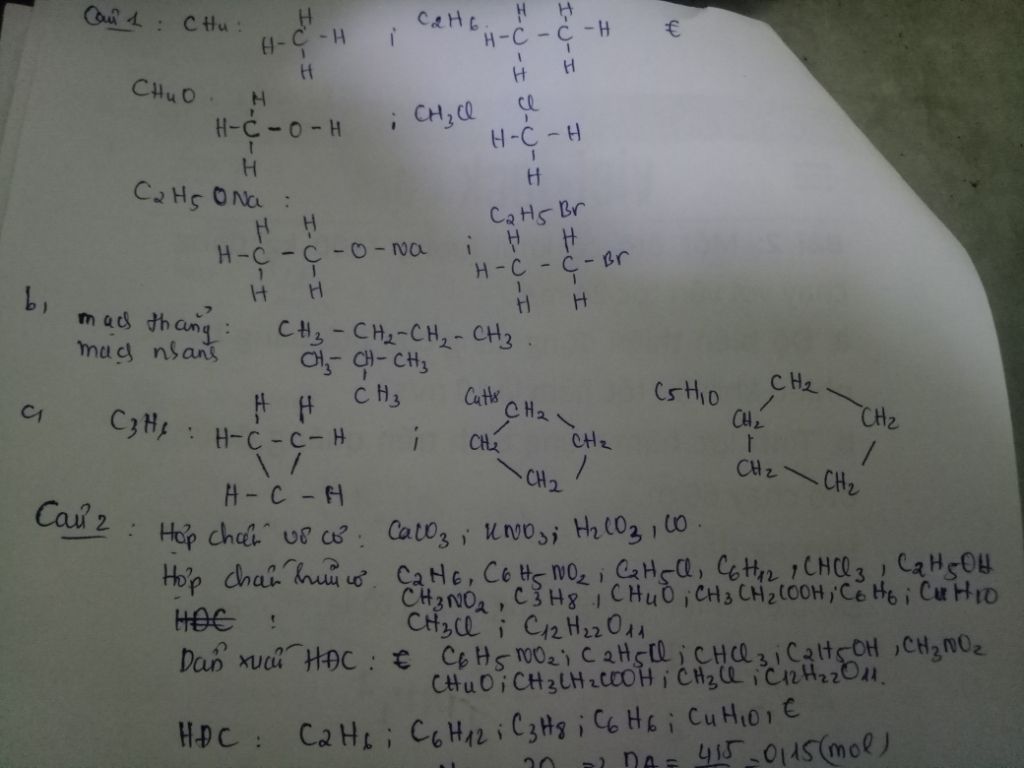 Câu 1 : CH4 : H-C-H ; C2H6. H-C-C-H €
CH4O. H-C-O-H ; CH3Cl H-C-H
C2H5ONa : H-C-C-O-Na ; C2H5Br H-C-C-Br
b, mạch thẳng : CH3-CH2-CH2-CH3.
mạch nhánh CH3-CH-CH3
CH3
c, C3H6 : H-C-C-H H-C-H ; C4H8 CH2 CH2 CH2 CH2 C5H10 CH2 CH2 CH2 CH2 CH2
Câu 2 : Hợp chất vô cơ : CaCO3 ; KNO3 ; H2CO3 , CO.
Hợp chất hữu cơ. C2H6, C6H5NO2 ; C2H5Cl, C6H12 , CHCl3 , C2H5OH
CH3NO2 , C3H8 , CH4O ; CH3CH2COOH ; C6H6 ; C4H10
HĐC : CH3Cl ; C12H22O11
Dẫn xuất HĐC : € C6H5NO2 ; C2H5Cl ; CHCl3 ; C2H5OH , CH3NO2
CH4O ; CH3CH2COOH ; CH3Cl ; C12H22O11.
HĐC : C2H6 ; C6H12 ; C3H8 ; C6H6 ; C4H10 , €
30 => nA = 4,5 = 0,15 (mol)